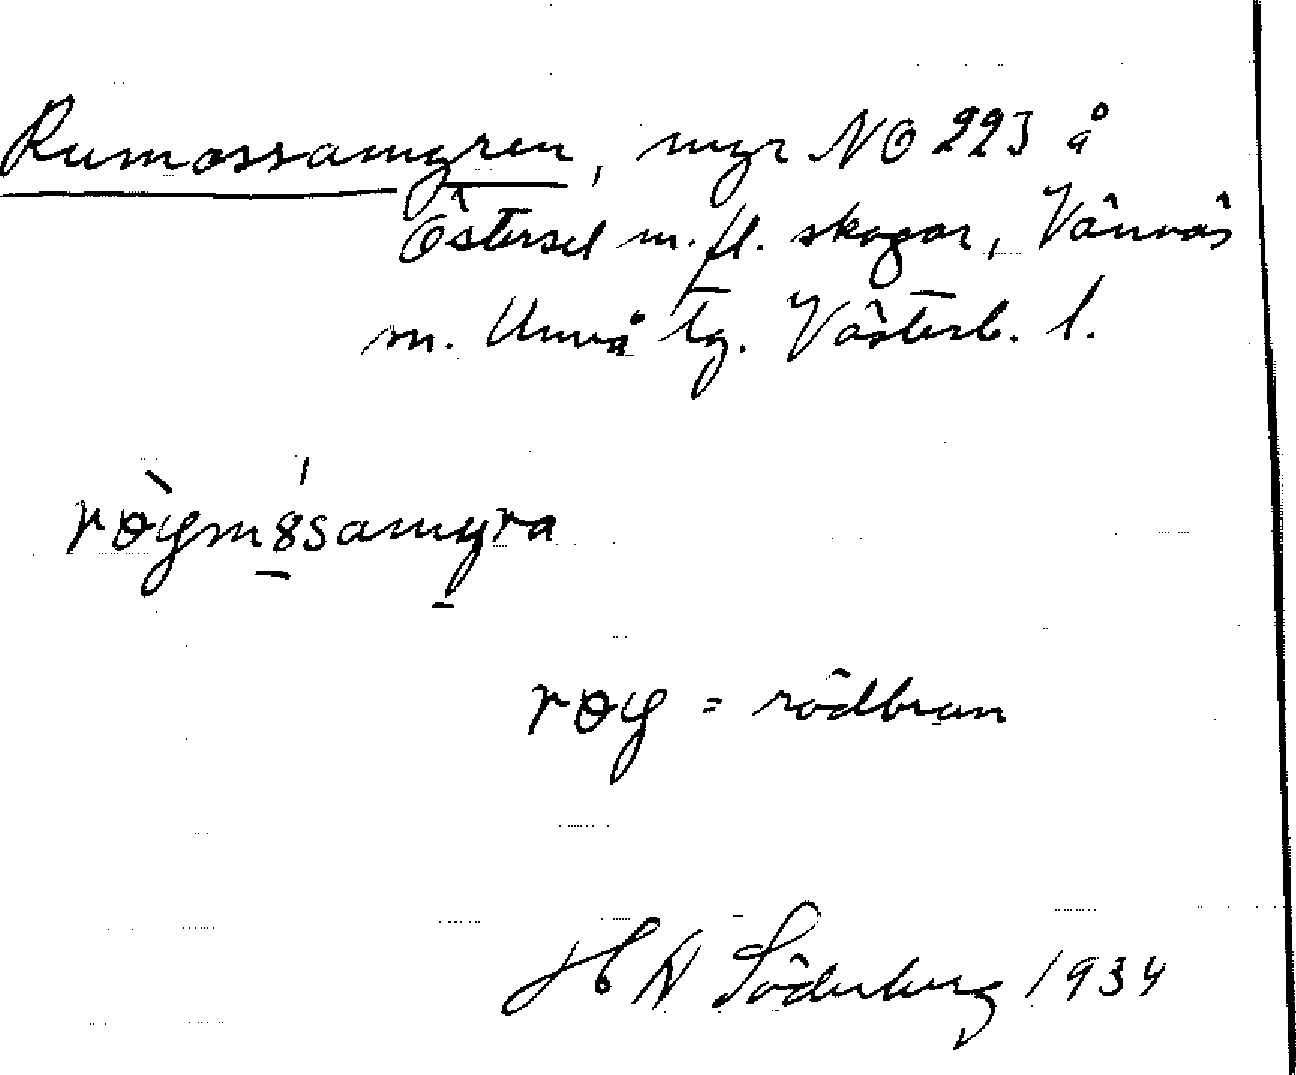 Rumossamyren, myr NO 223 å
Östersel m. fl. skogar, Vännäs
m. Umeå tg. Västerb. l.
røymösamyra
røy = rödbrun
H N Söderberg 1934